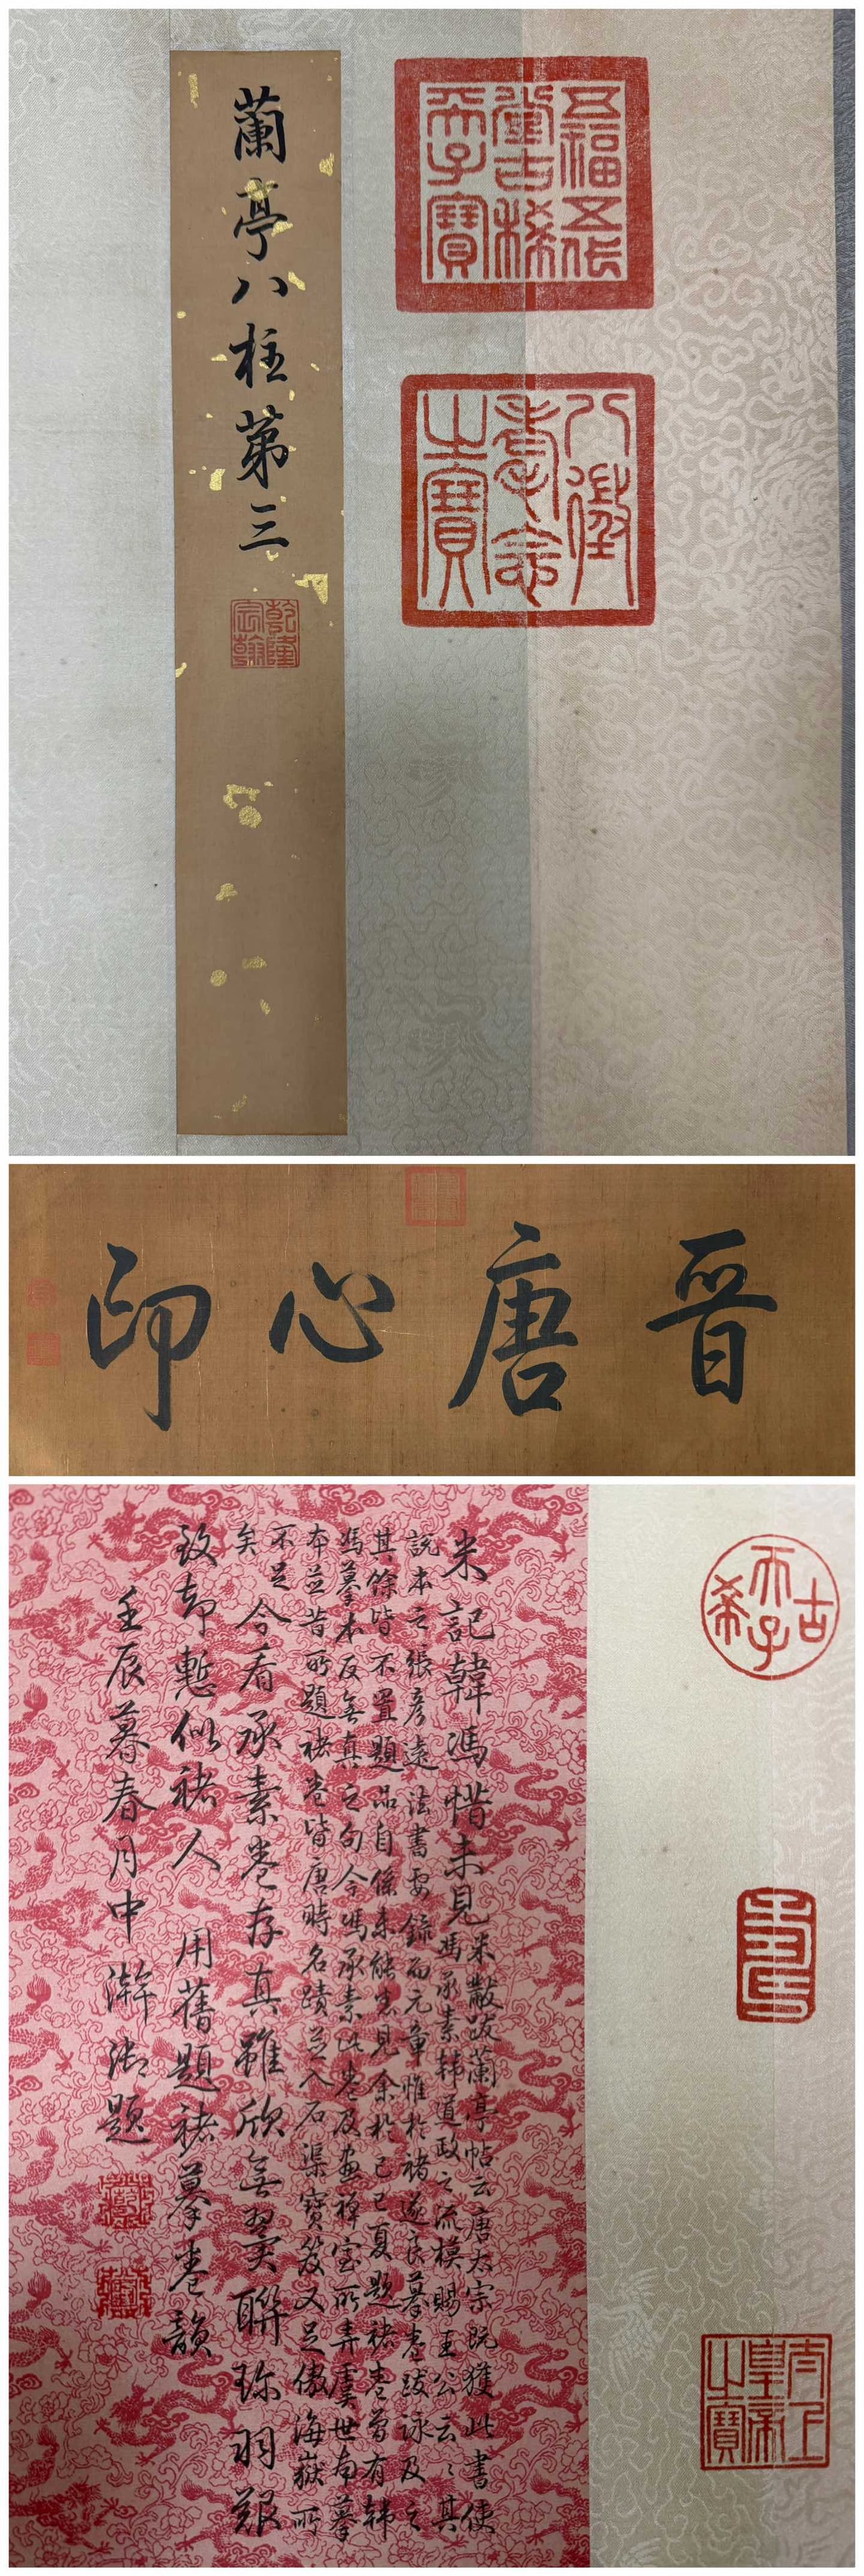 五福五代
堂古稀
天子寶
八徵
耄念
之寶
蘭亭八柱第三
乾隆
宸翰
晉唐心印
古希天子
壽
太上
皇帝
之寶
米記韓馮惜未見
米黻跋蘭亭帖云唐太宗既獲此書使
馮承素韓道政之流模賜王公云〻其
說本之張彥遠法書要錄而元章惟於褚遂良摹卷跋詠及之
其餘皆不置題品自係未能悉見余於己巳夏題褚卷曾有韓
馮摹本反無真之句今馮承素此卷及畫禪室所弆虞世南摹
本並昔所題褚卷皆唐時名蹟並入石渠寶笈又足傲海嶽所
不足
矣
今看承素卷存真雖欣無翼聯珎羽艱
致却慙似褚人 用舊題褚摹卷韻
壬辰暮春月中澣御題